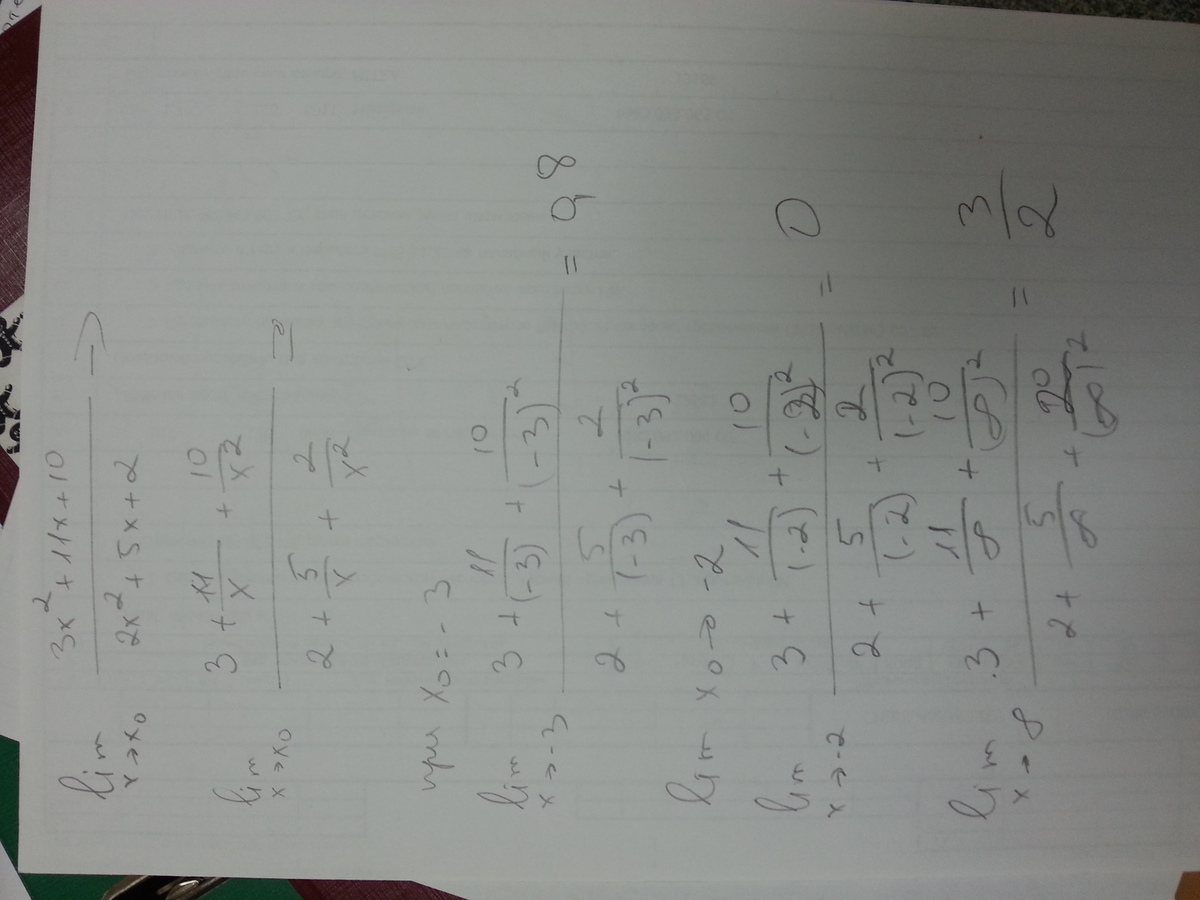 lim x→x₀ (3x² + 11x + 10) / (2x² + 5x + 2) →
lim x→x₀ (3 + 11/x + 10/x²) / (2 + 5/x + 2/x²) =
при x₀ = -3
lim x→-3 (3 + 11/(-3) + 10/(-3)²) / (2 + 5/(-3) + 2/(-3)²) = 0,8
lim x₀→-2
lim x→-2 (3 + 11/(-2) + 10/(-2)²) / (2 + 5/(-2) + 2/(-2)²) = 0
lim x→∞ (3 + 11/∞ + 10/(∞)²) / (2 + 5/∞ + 20/(∞)²) = 3/2